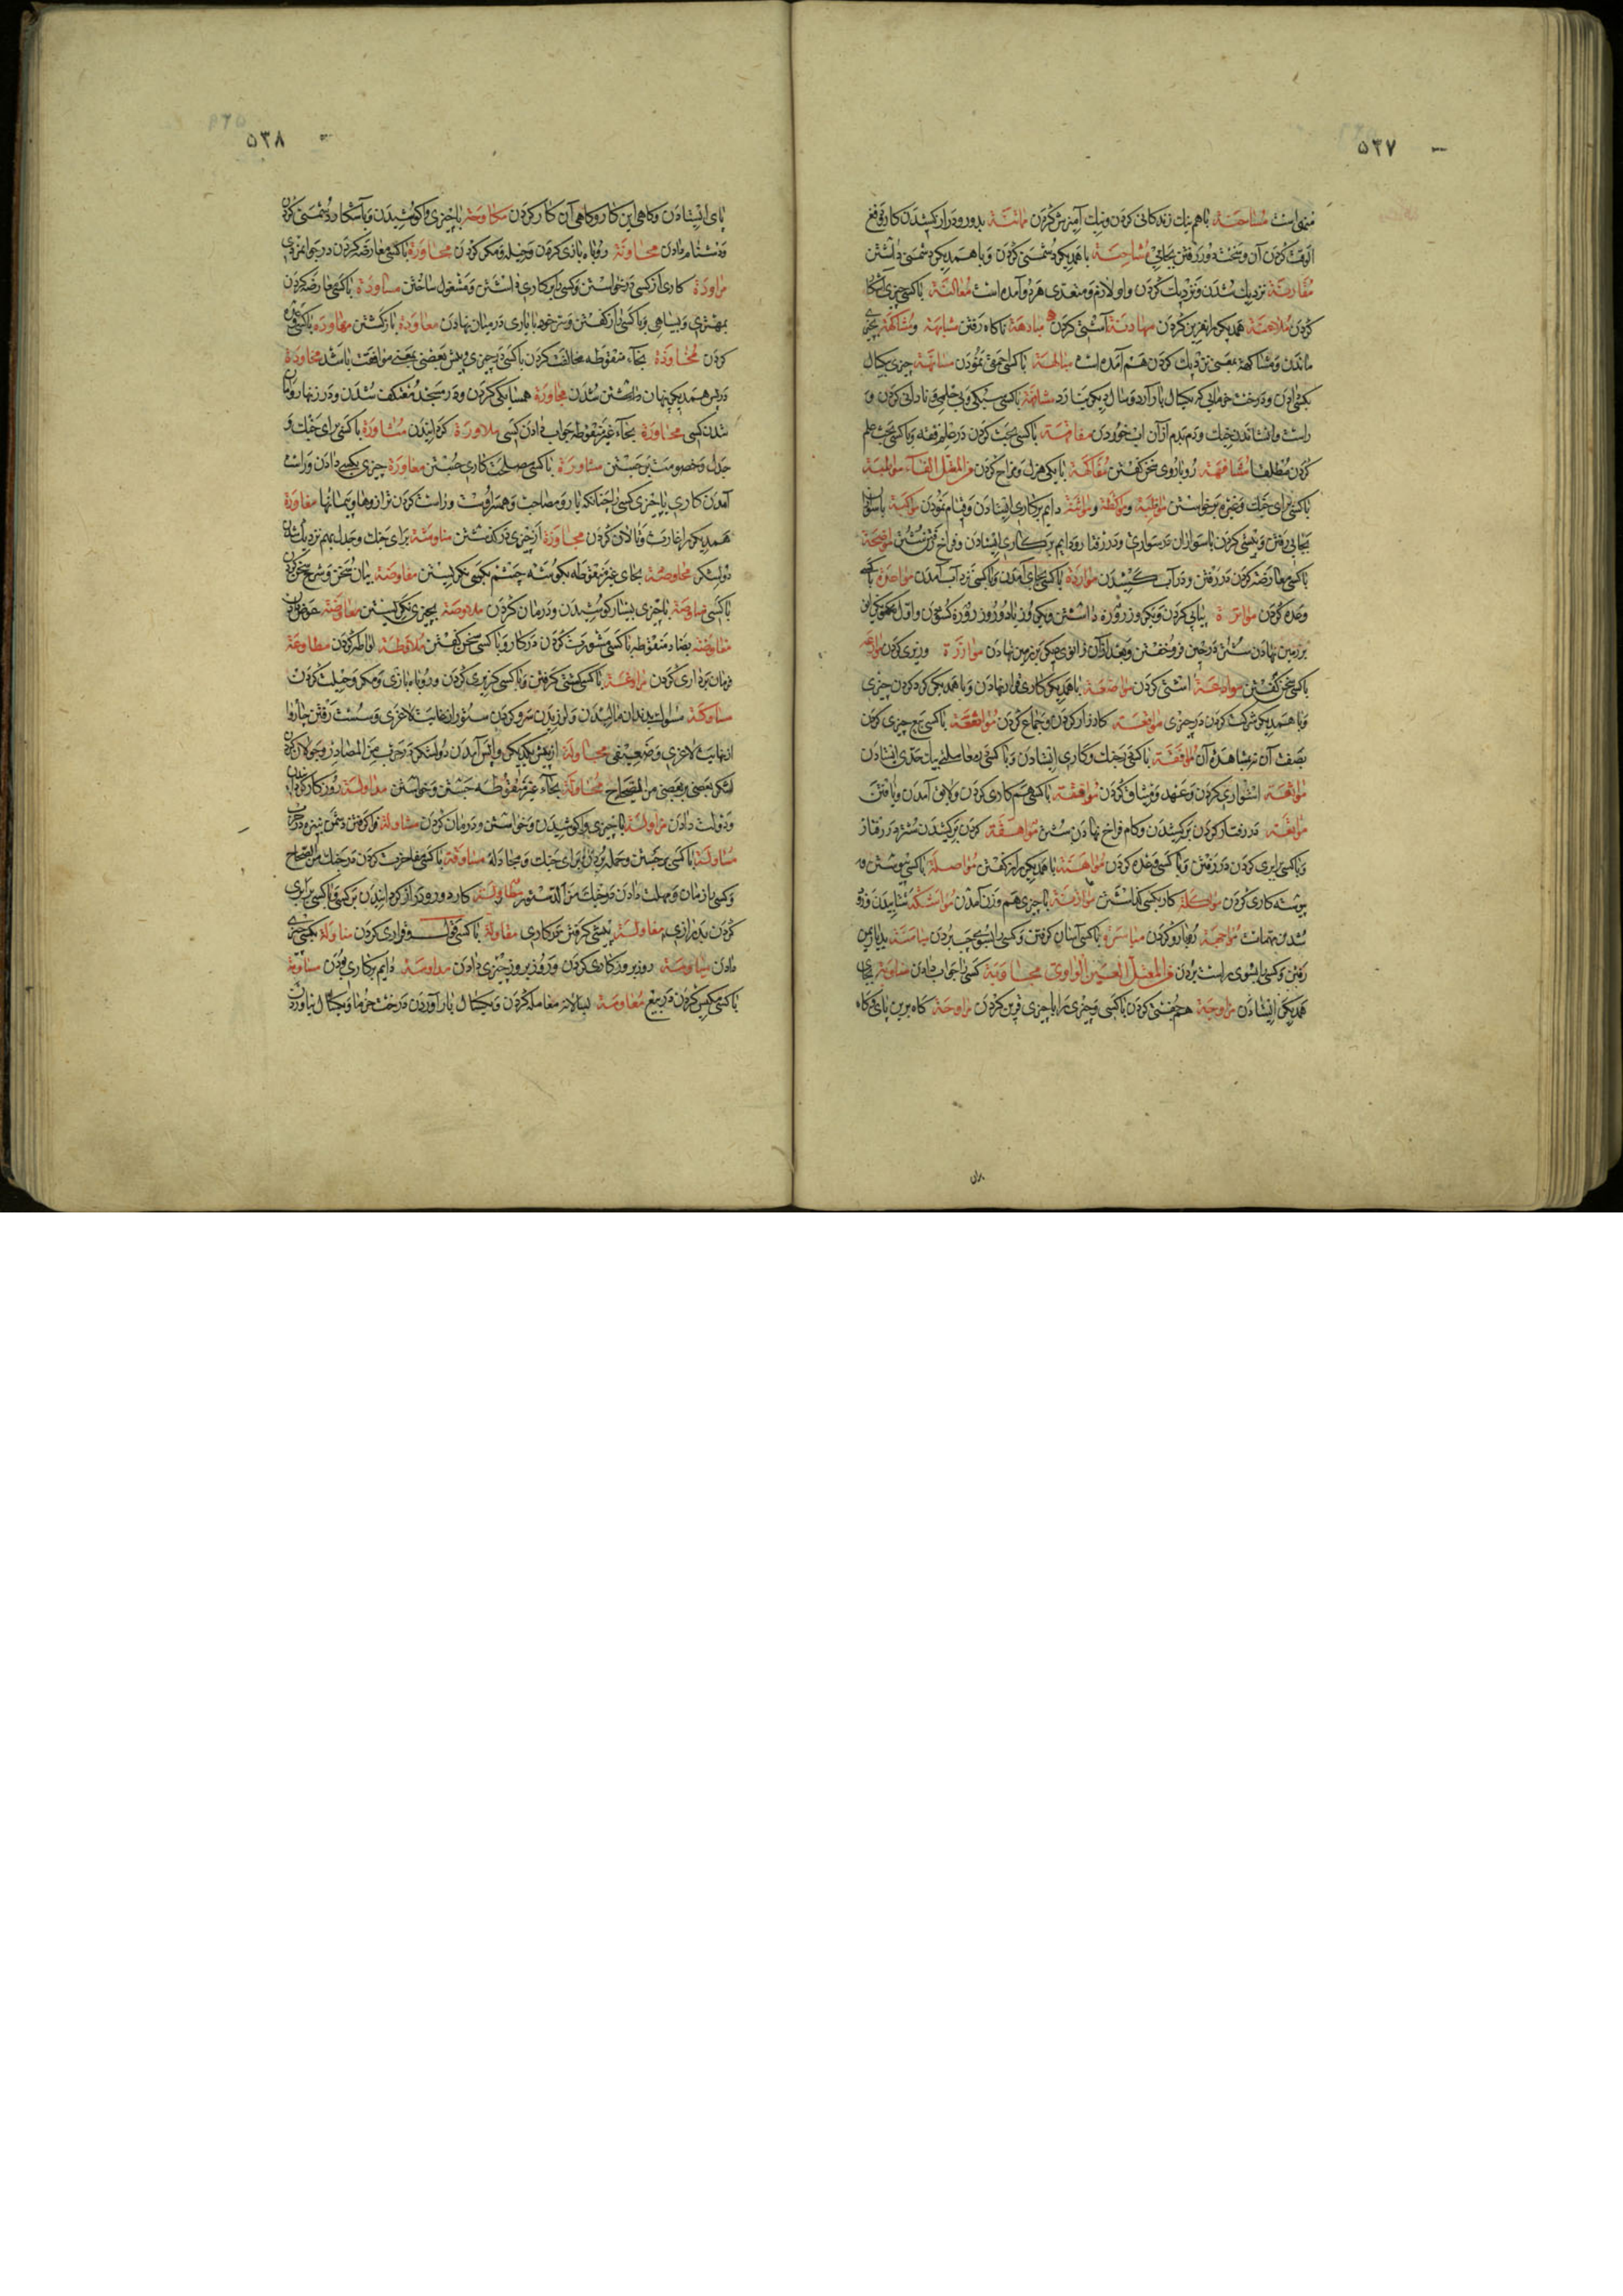 ۵۳۷
منهی است مصاحبة باهم نیك زندکانی کردن ونیك آمیزش کردن مماتنة بدور ودراز کشیدن کار
کردن آن و رفتن بجایی مشاحنة باهمدیکر دشمنی کردن وباهمدیکر دشمنی داشتن
مقارنة نزدیك شدن ونزدیك کردن واو لازم ومتعدی هردو آمده است معالنة باکسی چیزی آشکارا
کردن ملاعنة همدیکر را نفرین کردن مهادنة آشتی کردن مبادهة ناکاه رفتن مشابهة ومشاکهة بچیزی
ماندن ومشاکهة بمعنی نزدیك کردن هم آمده است مبالهة باکسی احمقی نمودن مسانهة چیزی بکسال
بکسی دادن ودرخت خرمایی که یکسال بار آرد وسال دیکر نیارد مشافهة باکسی سبکی وبی حلمی ونادانی کردن و
راست وایستاندن خیك ودم بدم از آن آب خوردن مفاقهة باکسی بحث کردن در علم فقه وباکسی بحث علم
کردن مطلقا مشافهة روباروی سخن کفتن مفاکهة بایکی هزل ومزاح کردن من المعتل الفاء مواثبة
باکسی برای جنك وغیره برخواستن مواظبة ومواکظة ومواثبة دایم برکاری ایستادن وقیام نمودن مواکبة باسواران
بجایی رفتن وپیشی کردن باسواران در سواری ودر رفتار رو دایم برکاری ایستادن وفراخ رفتن شتر مواضحة
باکسی معارضه کردن در رفتن ودر آب کشیدن مواردة باکسی بجای آمدن وباکسی نزد آب آمدن مواعدة باکسی
وعده کردن مواترة پیاپی کردن ویك روز روزه داشتن ویك روز یا دو روز روزه کشودن واول
برزمین نهادن شتر در حین فرو خفتن وبعد از آن زانوی دیکر بر زمین نهادن موازرة وزیری کردن
باکسی سخن کفتن موادعة آشتی کردن مواضعة باهمدیکر کاری قرار نهادن وباهمدیکر کرو کردن چیزی
وباهمدیکر شرکت کردن در چیزی مواقعة کارزار کردن وجماع کردن مواضعة باکسی چیزی کردن
بصفت آن مواقفة باکسی در جنك وکاری ایستادن وباکسی در معامله بیك حدی ایستادن
مواثقة استواری کردن وعهد ومیثاق کردن موافقة باکسی هم کاری کردن ولایق آمدن ویافتن
مواهقة در رفتار کردن برکشیدن وکام فراخ نهادن شتر مواهقة کردن برکشیدن شتر در رفتار
وباکسی برابری کردن در رفتن وباکسی وعده کردن مواهنة باهمدیکر راز کفتن مواصلة باکسی پیوستن و
پیوسته کاری کردن مواکلة کار بکسی کذاشتن موازنة باچیزی هم وزن آمدن مواشکة شتابیدن وزود
شدن مهمات مواجهة روبارو کردن میاسرة باکسی آسان کرفتن وکسی را بسوی چپ بردن میامنة بدیار یمن
رفتن وکسی را بسوی راست بردن من المعتل العین الواوی مجاوبة کسی را جواب دادن مناوبة بجای
همدیکر ایستادن مزاوجة هم جفتی کردن باکسی وچیزی را باچیزی قرین کردن مراوحة کاه برین پای وکاه
بران
۵۳۸
پای ایستادن وکاهی این کار وکاهی آن کار کردن مکاوحة باچیزی واکوشیدن وباآشکارا دشمنی کردن
ودشنام دادن مراوغة روباه بازی کردن وحیله ومکر کردن مجاودة باکسی معارضه کردن در جوانمردی
مراودة کاری از کسی درخواستن وکسی را بر کاری داشتن ومشغول ساختن مساودة باکسی معارضه کردن
بمهتری وسیاهی وباکسی راز کفتن وسر خود بایاری در میان نهادن معاودة بازکشتن معاودة باکسی
کردن مخاوذة بخاء منقوطه مخالفت کردن باکسی در چیزی وپیش بعضی بمعنی موافقت باشد مخاوذة
درپس همدیکر پنهان داشتن شدن مجاورة همسایکی کردن ودر مسجد معتکف شدن ودر زنهار
شدن کسی محاورة بحاء غیر منقوطه جواب دادن کسی ملاورة کردانیدن مشاورة باکسی برای جنك و
جدل وخصومت برجستن مشاورة باکسی مصلحت کاری جستن معاورة چیزی بکسی دادن وراست
آمدن کاری یاچیزی کسی را چنانکه یار ومصاحب وهمراه اوست وراست کردن ترازوها وپیمانها مغاورة
همدیکر را غارت وتالان کردن مجاوزة از چیزی درکذشتن مناوشة برای جنك وجدل بهم نزدیك شدن
دو لشکر محاوصة بحای غیر منقوطه بکوشه چشم بکسی نکریستن مفاوضة بیان سخن وشرح سخن کردن
باکسی مراوضة باچیزی بسیار کوشیدن ودرمان کردن ملاوصة بچیزی نکریستن معاوضة عوض دادن
مفاوضة بضاد منقوطه باکسی مشورت کردن در کار وباکسی سخن کفتن ملاوطة لواطه کردن مطاوعة
فرمان برداری کردن مراوغة باکسی کشتی کرفتن وباکسی کربزی کردن وروباه بازی ومکر وحیلت کردن
مساوکة مسواك بدندان مالیدن ولرزیدن سر وکردن ستور از غایت لاغری وسست رفتن چاروا
از نهایت لاغری وضعیفی مجاولة از پیش یکدیکر واپس آمدن دو لشکر در حرب من المصادر وجولان کردن
لشکر بعضی ببعضی من الصحاح محاولة بحاء غیر منقوطه جستن وخواستن مداولة روزکار کردانیدن
ودولت دادن مزاولة باچیزی واکوشیدن وخواستن ودرمان کردن مشاولة فرا کرفتن دشمن بنیزه در جنك
مصاولة باکسی برجستن وحمله بردن برای جنك ومجادله مساوقة باکسی مفاخرت کردن در جنك من الصحاح
وکسی را زمان ومهلت دادن در جنك من الدستور مطاولة کار دور ودراز کردانیدن برکسی وباکسی برابری
کردن بدرازی مغاولة پیشی کرفتن در کاری مقاولة باکسی قول وقراری کردن مناولة بکسی چیزی
دادن میاومة روز بروز کاری کردن وروز بروز چیزی دادن مداومة دایم برکاری بودن مساومة
باکسی مکیس کردن در بیع معاومة بسالانه معامله کردن ویکسال بار آوردن درخت خرما ویکسال نیاوردن